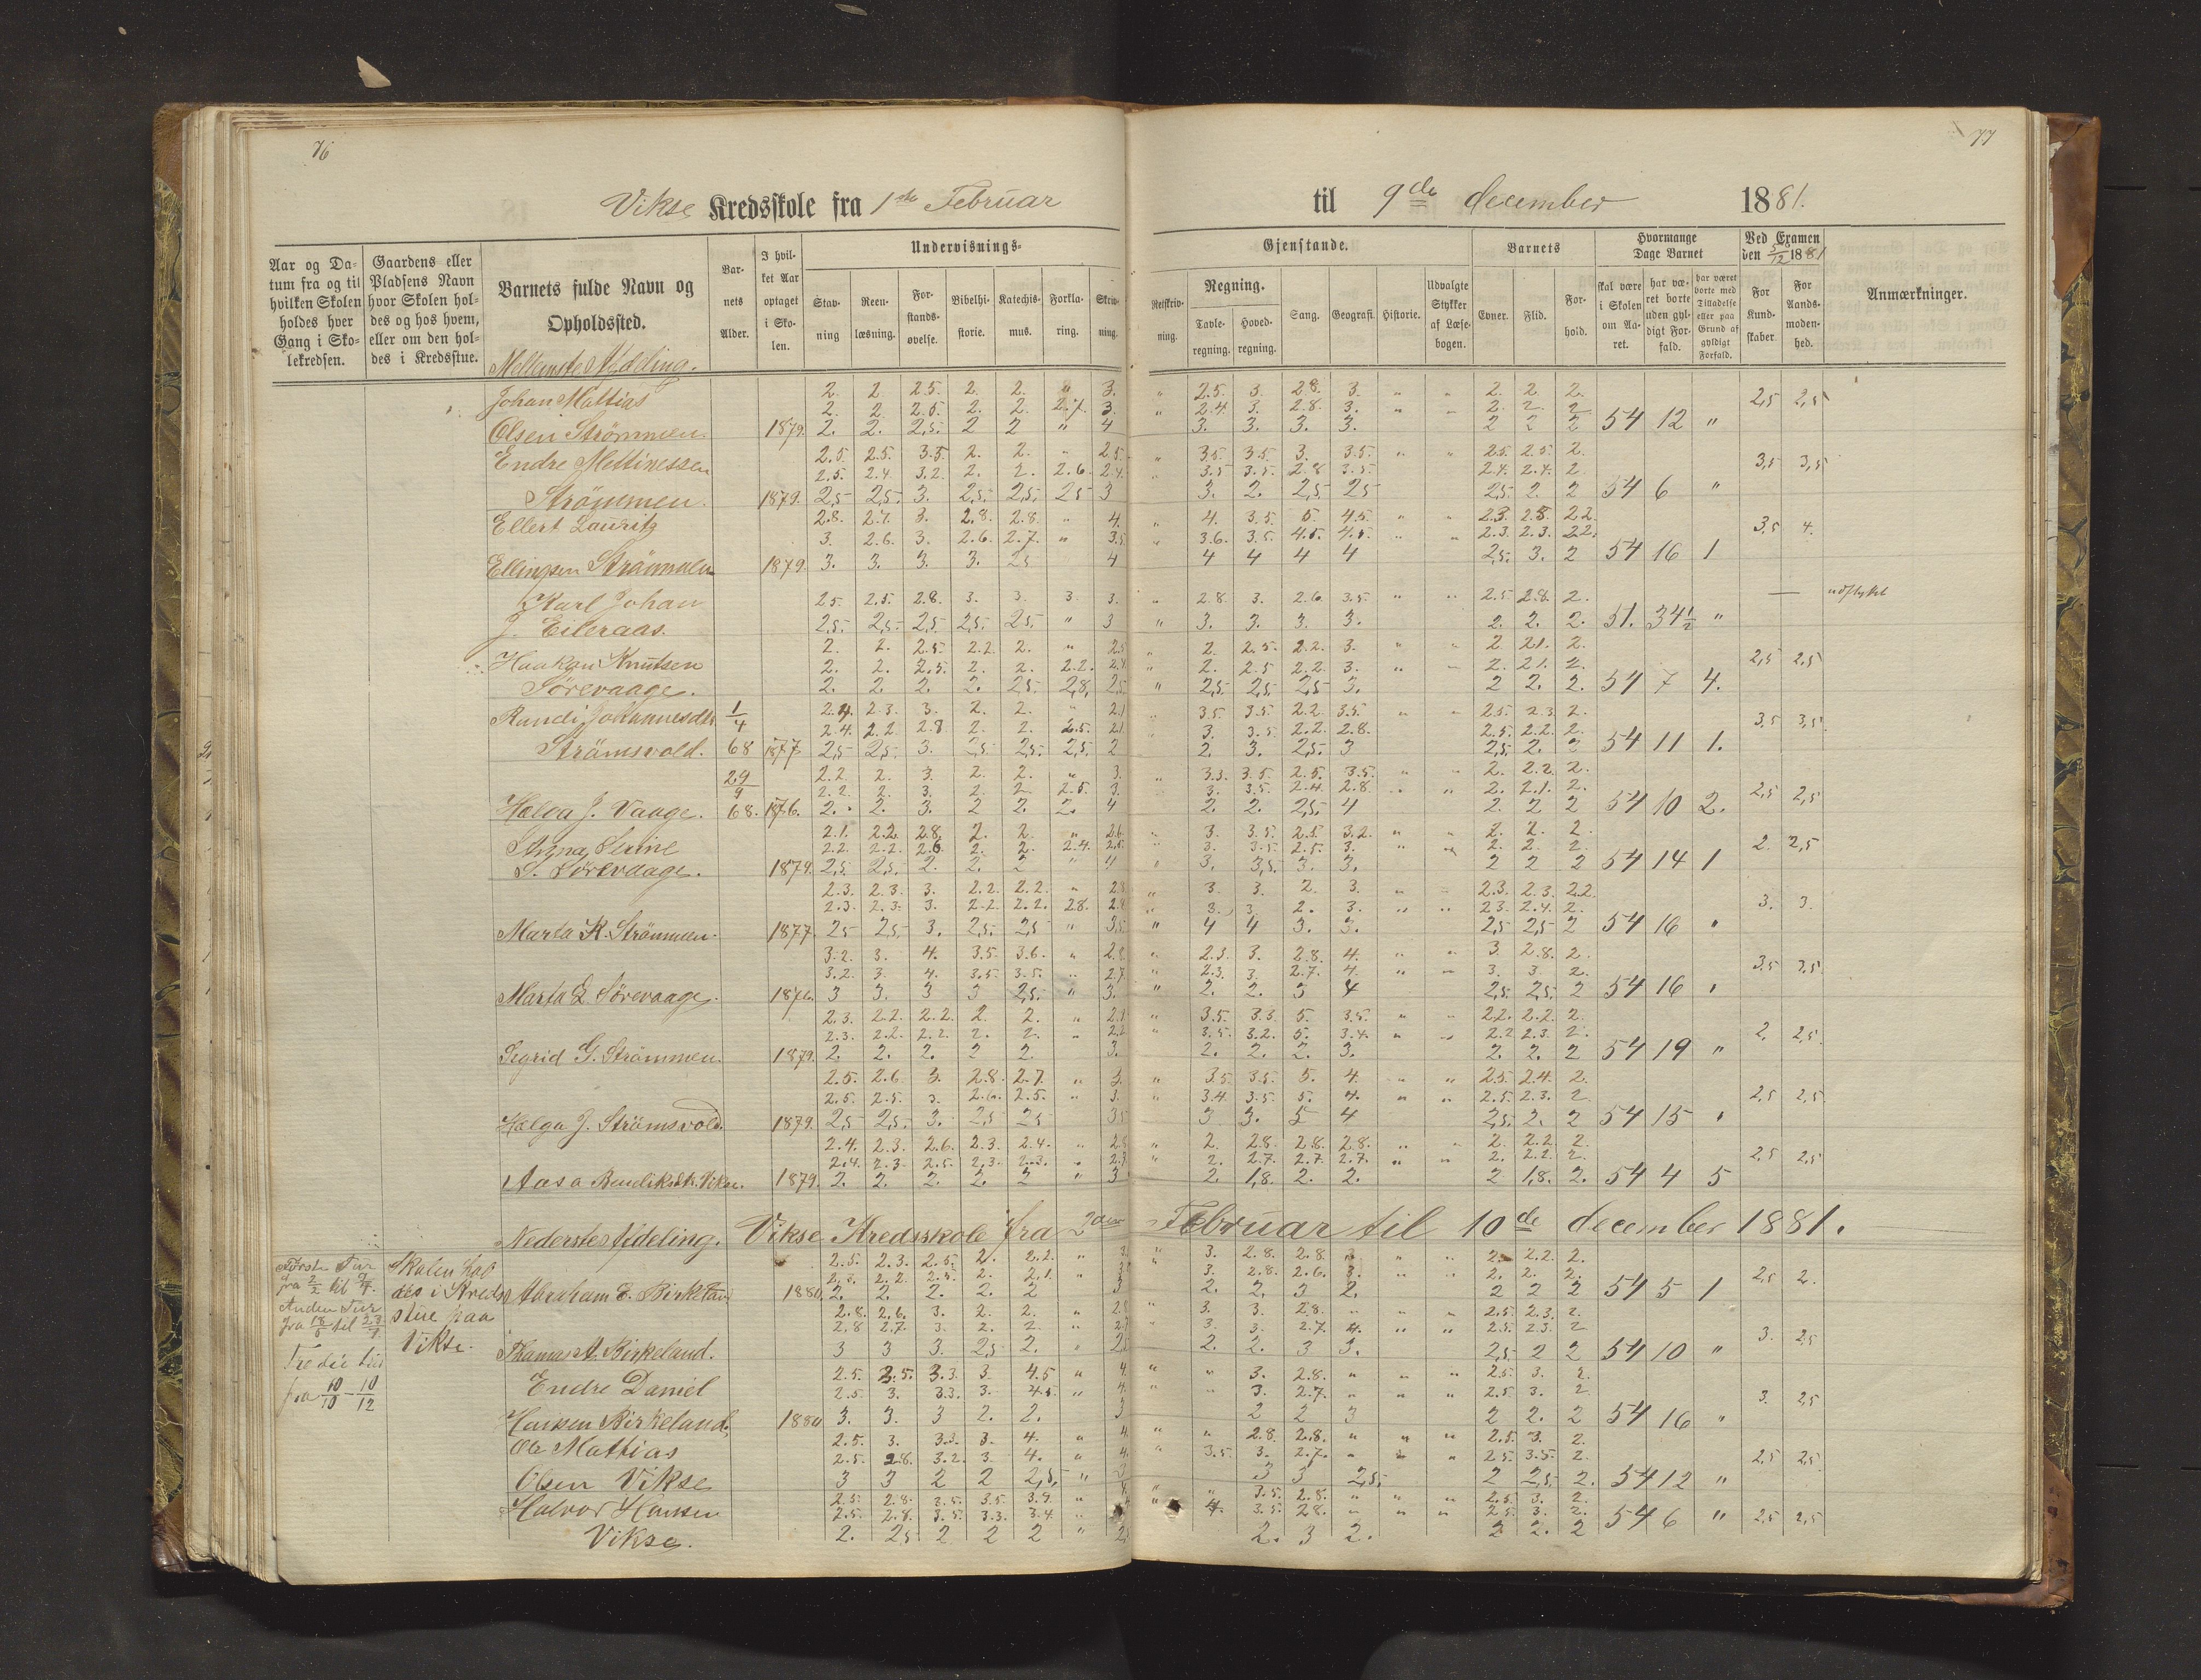 76
77
Vikse Kredsskole fra 1ste Februar til 9de december 1881.
Aar og Datum fra og til hvilken Skolen holdes hver Gang i Skolekredsen.
Gaardens eller Pladsens Navn hvor Skolen holdes og hos hvem, eller om den holdes i Kredsstue.
Barnets fulde Navn og Opholdssted.
Barnets Alder.
I hvilket Aar optaget i Skolen.
Undervisnings-
Stavning
Reenlæsning.
Forstandsøvelse.
Bibelhistorie.
Katechismus.
Forklaring.
Skrivning.
Gjenstande.
Retskrivning.
Regning.
Tavleregning.
Hovedregning.
Sang.
Geografi.
Historie.
Udvalgte Stykker af Læsebogen.
Barnets
Evner.
Flid.
Forhold.
Hvormange Dage Barnet
skal være i Skolen om Aaret.
har været borte uden gyldigt Forfald.
har været borte med Tilladelse eller paa Grund af gyldigt Forfald.
Ved Examen den 5/12 1881
For Kundskaber
For Aandsmodenhed.
Anmærkninger.
Mellemste Afdeling.
Johan Mattias 2. 2. 2.5. 2. 2. " 3. " 2.5. 3. 2.8. 3. " " 2. 2. 2.
2. 2. 2.5. 2. 2. 2.7. 3. " 2.4. 3. 2.8. 3. " " 2. 2. 2 2,5 2,5
Olsen Strömmen. 1879. 2. 2. 2,5. 2 2 " 4 3. 3. 3. 3. 2 2 2 54 12 "
Endre Mettinessen 2.5. 2.5. 3.5 2. 2. " 2.5 " 3.5. 3.5. 3. 3.5. " " 2.5. 2.5. 2.
2.5. 2.4 3.2. 2. 2. 2.6. 2.4. " 3.5 3.5. 2.8 3.5. 2.4. 2.4. 2 3,5 3,5
Strömmen. 1879. 2,5 2,5. 3. 2,5. 2,5. 2,5 3 3. 2. 2,5 2,5 2,5. 2. 2 54 6 "
Ellert Lauritz 2.8. 2.7. 3. 2.8. 2.8. " 4. " 4. 3.5. 5. 4.5. " " 2.3. 2.8. 2.2.
3. 2.6. 3. 2.6. 2.7. " 3.5 " 3.6. 3.5. 4.5. 4.5. " " 2.3. 2.3. 2.2. 3,5 4.
Ellingsen Strömmen 1879. 3. 3. 3. 3. 2,5 4 4 4 4 4 2,5. 3. 2 54 16 1
Karl Johan 2.5 2.5. 2.8. 3. 3. 3. 3. " 2.8. 3. 2.6. 3.5. " " 2.5 2.8. 2. —
J. Eileraas. 2,5. 2,5. 2,5 2,5. 2,5. " 3 " 3. 3. 3. 3. 2. 2. 2. 51. 34½ "
2. 2. 2.5. 2.2. 2. " 2.5 " 2. 2.5. 2.2. 3. " " 2. 2.1. 2.
Haakon Knutsen 2. 2. 2.5. 2. 2. 2.2. 2.4. " 2. 2.5 2.2. 3. " " 2. 2.1. 2. 2,5 2,5
Sörevaage. 2. 2. 2. 2. 2,5. 2,8. 2,5 " 2,5. 2,5. 2,5 3. 2 2. 2. 54 7 4.
Randi Johannesdtr 1/4 2.4. 2.3. 3. 2. 2. " 2.1 " 3.5. 3.5. 2.2. 3.5. " " 2.5. 2.3. 2.
2.4. 2.2. 2.8 2. 2. 2.5. 2.1. 3. 3.5. 2.2. 2.8. 2.5. 2.2. 2. 3,5 3,5
Strömsvold. 68 1877 2,5 2,5. 3. 2,5. 2,5. 2,5. 2 2. 3. 2,5. 3 2,5. 2. 2 54 11 1.
29/9 2.2. 2. 3. 2. 2. " 3. " 3.3. 3.5. 2.5. 3.5. " " 2. 2.2. 2.
2.2. 2. 3. 2. 2. 2.5. 3. 3. 3.5. 2.4. 2.8 " " 2. 2.1. 2. 2,5 2,5
Helga J. Vaage. 68. 1876. 2. 2. 3. 2 2. 2. 4 2. 2. 2,5. 4 2. 2 2 54 10 2.
2.1. 2.2. 2.8. 2. 2. " 2.6. " 3. 3.5. 2.5. 3.2. " " 2. 2. 2.
Anna Serine 2.2. 2.2. 2.6 2. 2. 2.4. 2.5. " 3. 3.5. 2.5. 3. " " 2. 2. 2. 2. 2,5
S. Sörevaage. 1879. 2,5. 2,5. 2. 2. 2 " 4 " 3. 3,5. 3. 3. 2 2 2 54 14 1
2.3. 2.3. 3. 2.2. 2.2. " 2.8 " 3. 3. 2. 3. " " 2.3. 2.3. 2.2.
2.3. 2.3. 3. 2.2. 2.2. 2.8. 2.8 " 3. 3. 2. 3. " " 2.3. 2.4. 2. 3. 3.
Marta K. Strömmen. 1877. 2,5 2,5. 3. 2,5. 2,5 " 3,5 " 4 4 3. 3. 2,5 2,5 2 54 16 "
3.2. 3. 4. 3.5. 3.6. " 2.8. " 2.3. 3. 2.8. 4. " " 3 2.8. 2.
3.2. 3. 4. 3.5. 3.5. " 2.7. " 2.3. 3. 2.7. 4. " " 3. 3. 2. 3,5 3,5
Marta E Sörevaage. 1876. 3 3. 3 3 2,5. " 3. " 2. 2. 3 4 2,5. 2,5. 2 54 16 "
2.3. 2.2. 2.2. 2. 2. " 2.1 " 3.5. 3.3. 5. 3.5. " " 2.2. 2.2. 2.
2.3. 2.2. 2.2. 2. 2. " 2.2. " 3.5. 3.2. 5. 3.4. " " 2.2 2.3. 2. 2. 2,5
Sigrid G. Strömmen. 1879. 2. 2. 2. 2 2. 3. 2. 2. 2. 3. 2. 2. 2 54 19 "
2.5. 2.6 3. 2.8. 2.7. " 3. " 3.5. 3.5. 5. 4. " " 2.5. 2.4. 2.
2.5. 2.5. 3. 2.6. 2.5. " 3. " 3.4. 3.5 5. 4. " " 2.5. 2.3. 2. 2,5 2,5
Helga J. Strömsvold. 1879. 2,5 2,5. 3. 2,5 2,5 3,5 3 3. 5 4 2,5. 2. 2 54 15 "
2.4. 2.3. 2.6. 2.3. 2.4. " 2.8 " 2. 2.8. 2.8. 2.8. " " 2. 2.2. 2.
2.4. 2.3. 2.5. 2.3. 2.3. " 2.7 " 2. 2.7. 2.7. 2.7. " " 2. 2.2. 2. 2,5 2,5
Aasa Bendiksdtr. Vikse. 1879. 2. 2. 2. 2. 2 " 3 2. 1,8. 2. 2. 2 1,8. 2. 54 4 5
Nederste Afdeling. Vikse Kredsskole fra 2den Februar til 10de december 1881.
Første Tur
fra 2/2 til
Anden Tur
fra 18/5 til 23/7
Tredie Tur
fra 10/10 - 10/12
Skolen hol
des i Kreds
stue paa
Vikse.
2.5. 2.3. 2.5. 2. 2.2. " 3. " 3. 2.8. 2.8. 3 " " 2. 2.2. 2.
2.2. 2. 2.1. " 3. 2.8. 2.6. 3. " " 2. 2. 2. 2,5 2.
Abraham E. Birkeland 1880. 2. 2. 2. 2. 2 3 2. 2. 3 2. 2 2 2 54 5 1
2.8. 2.6. 3. 2. 2. " 2.8 " 3. 3. 2.8. " " " 2.5. 2.3. 2.
2.8 2.7. 3. 2. 2. " 2.7 " 3. 3. 2.7. 4. " " 2.5. 2.3. 2 3. 2,5
Thomas A. Birkeland. 3 3 3. 2,5 2. " 2,5 2. 2. 3 3. 2,5 2 2 54 10 "
2.5. 3.5. 3.3. 3. 4.5 " 4. " " 3. 2.8. " " " 2.5. 3. 2.
Endre Daniel 2.5 3. 3.3. 3. 4.5. " 4. " " 3. 2.7. " " " 2.5. 3. 2 3. 2,5
Hansen Birkeland. 1880 3. 3. 3 2. 2. 3 2 2 3 2 2. 2 54 16 "
2.5. 3. 3.3. 3. 4. " 4. " " 2.8. 2.8. " " " 2.5. 3. 2.
Ole Mathias 2.5. 2.8. 3.2. 3 4. " 4. " 3.5. 3. 2.7. " " " 2.5. 3.5. 2. 2,5 2,5
Olsen Vikse 3 3 2 2 2,5. " 3 3 3 2,5. 2 2,5. 2. 54 12 "
2.5. 2.8. 3.5. 3.5. 3.4. " " " 3.5. 2.8. " " " 2.5. 3. 2.
Halvor Hansen 2.5. 2.8. 3.5. 3.3. 3.4. " " 4. 3.5. 2.8. " " " 2.5. 3. 2. 2,5 2,5
Vikse. 2. 2,5 2 2 2 " 2, 2. 3 2. 2 2. 2 54 6 "